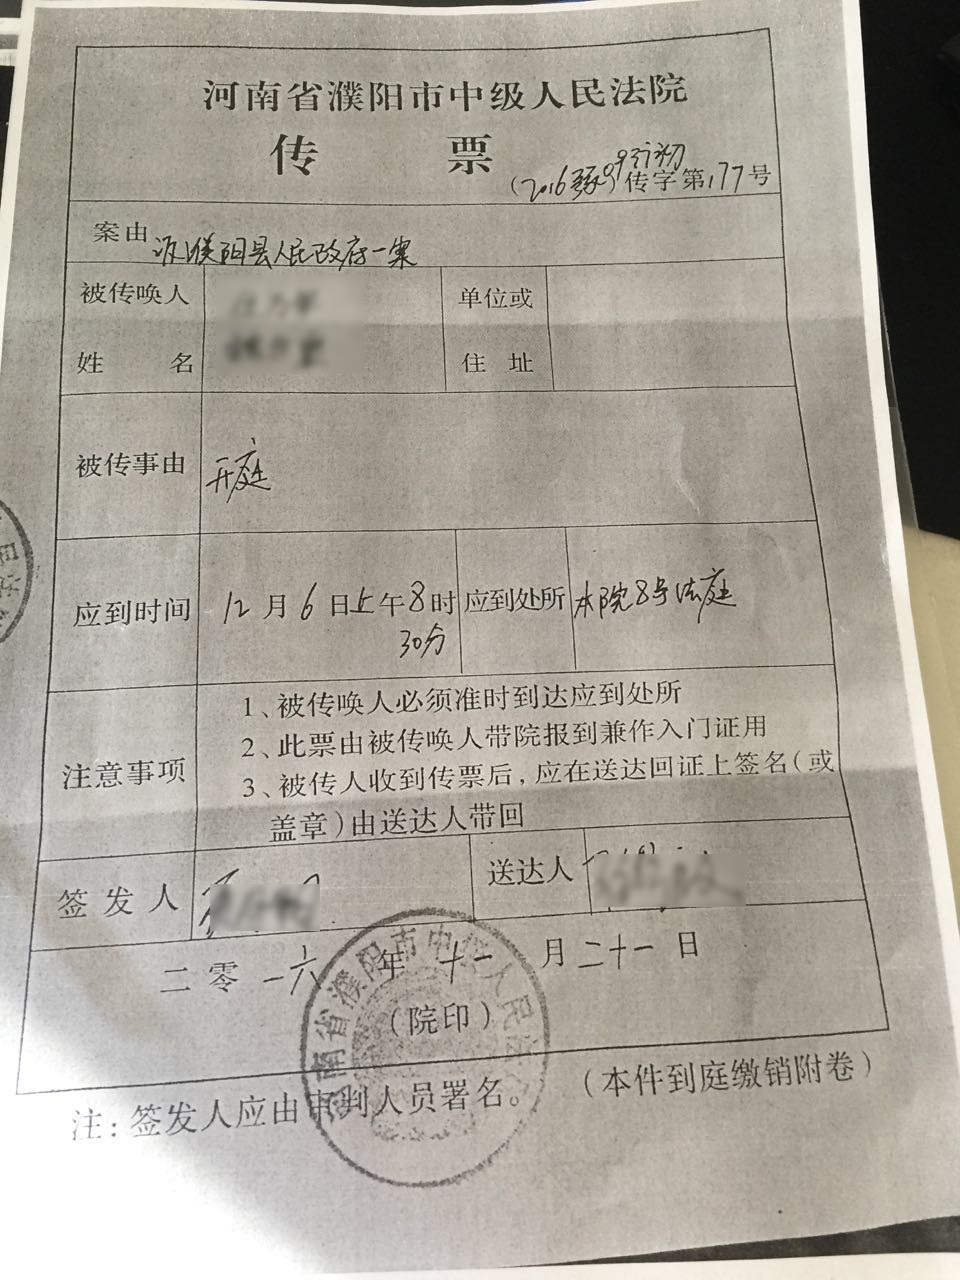 河南省濮阳市中级人民法院
传 票
(2016)豫09行初 传字第177号
案由 诉濮阳县人民政府一案
被传唤人
姓 名
单位或
住 址
被传事由 开庭
应到时间 12月6日上午8时30分 应到处所 本院8号法庭
注意事项
1、被传唤人必须准时到达应到处所
2、此票由被传唤人带院报到兼作入门证用
3、被传人收到传票后,应在送达回证上签名(或
盖章)由送达人带回
签发人 送达人
二零一六年十一月二十一日
(院印)
南省濮阳市中级人民法
注:签发人应由审判人员署名。 (本件到庭缴销附卷)